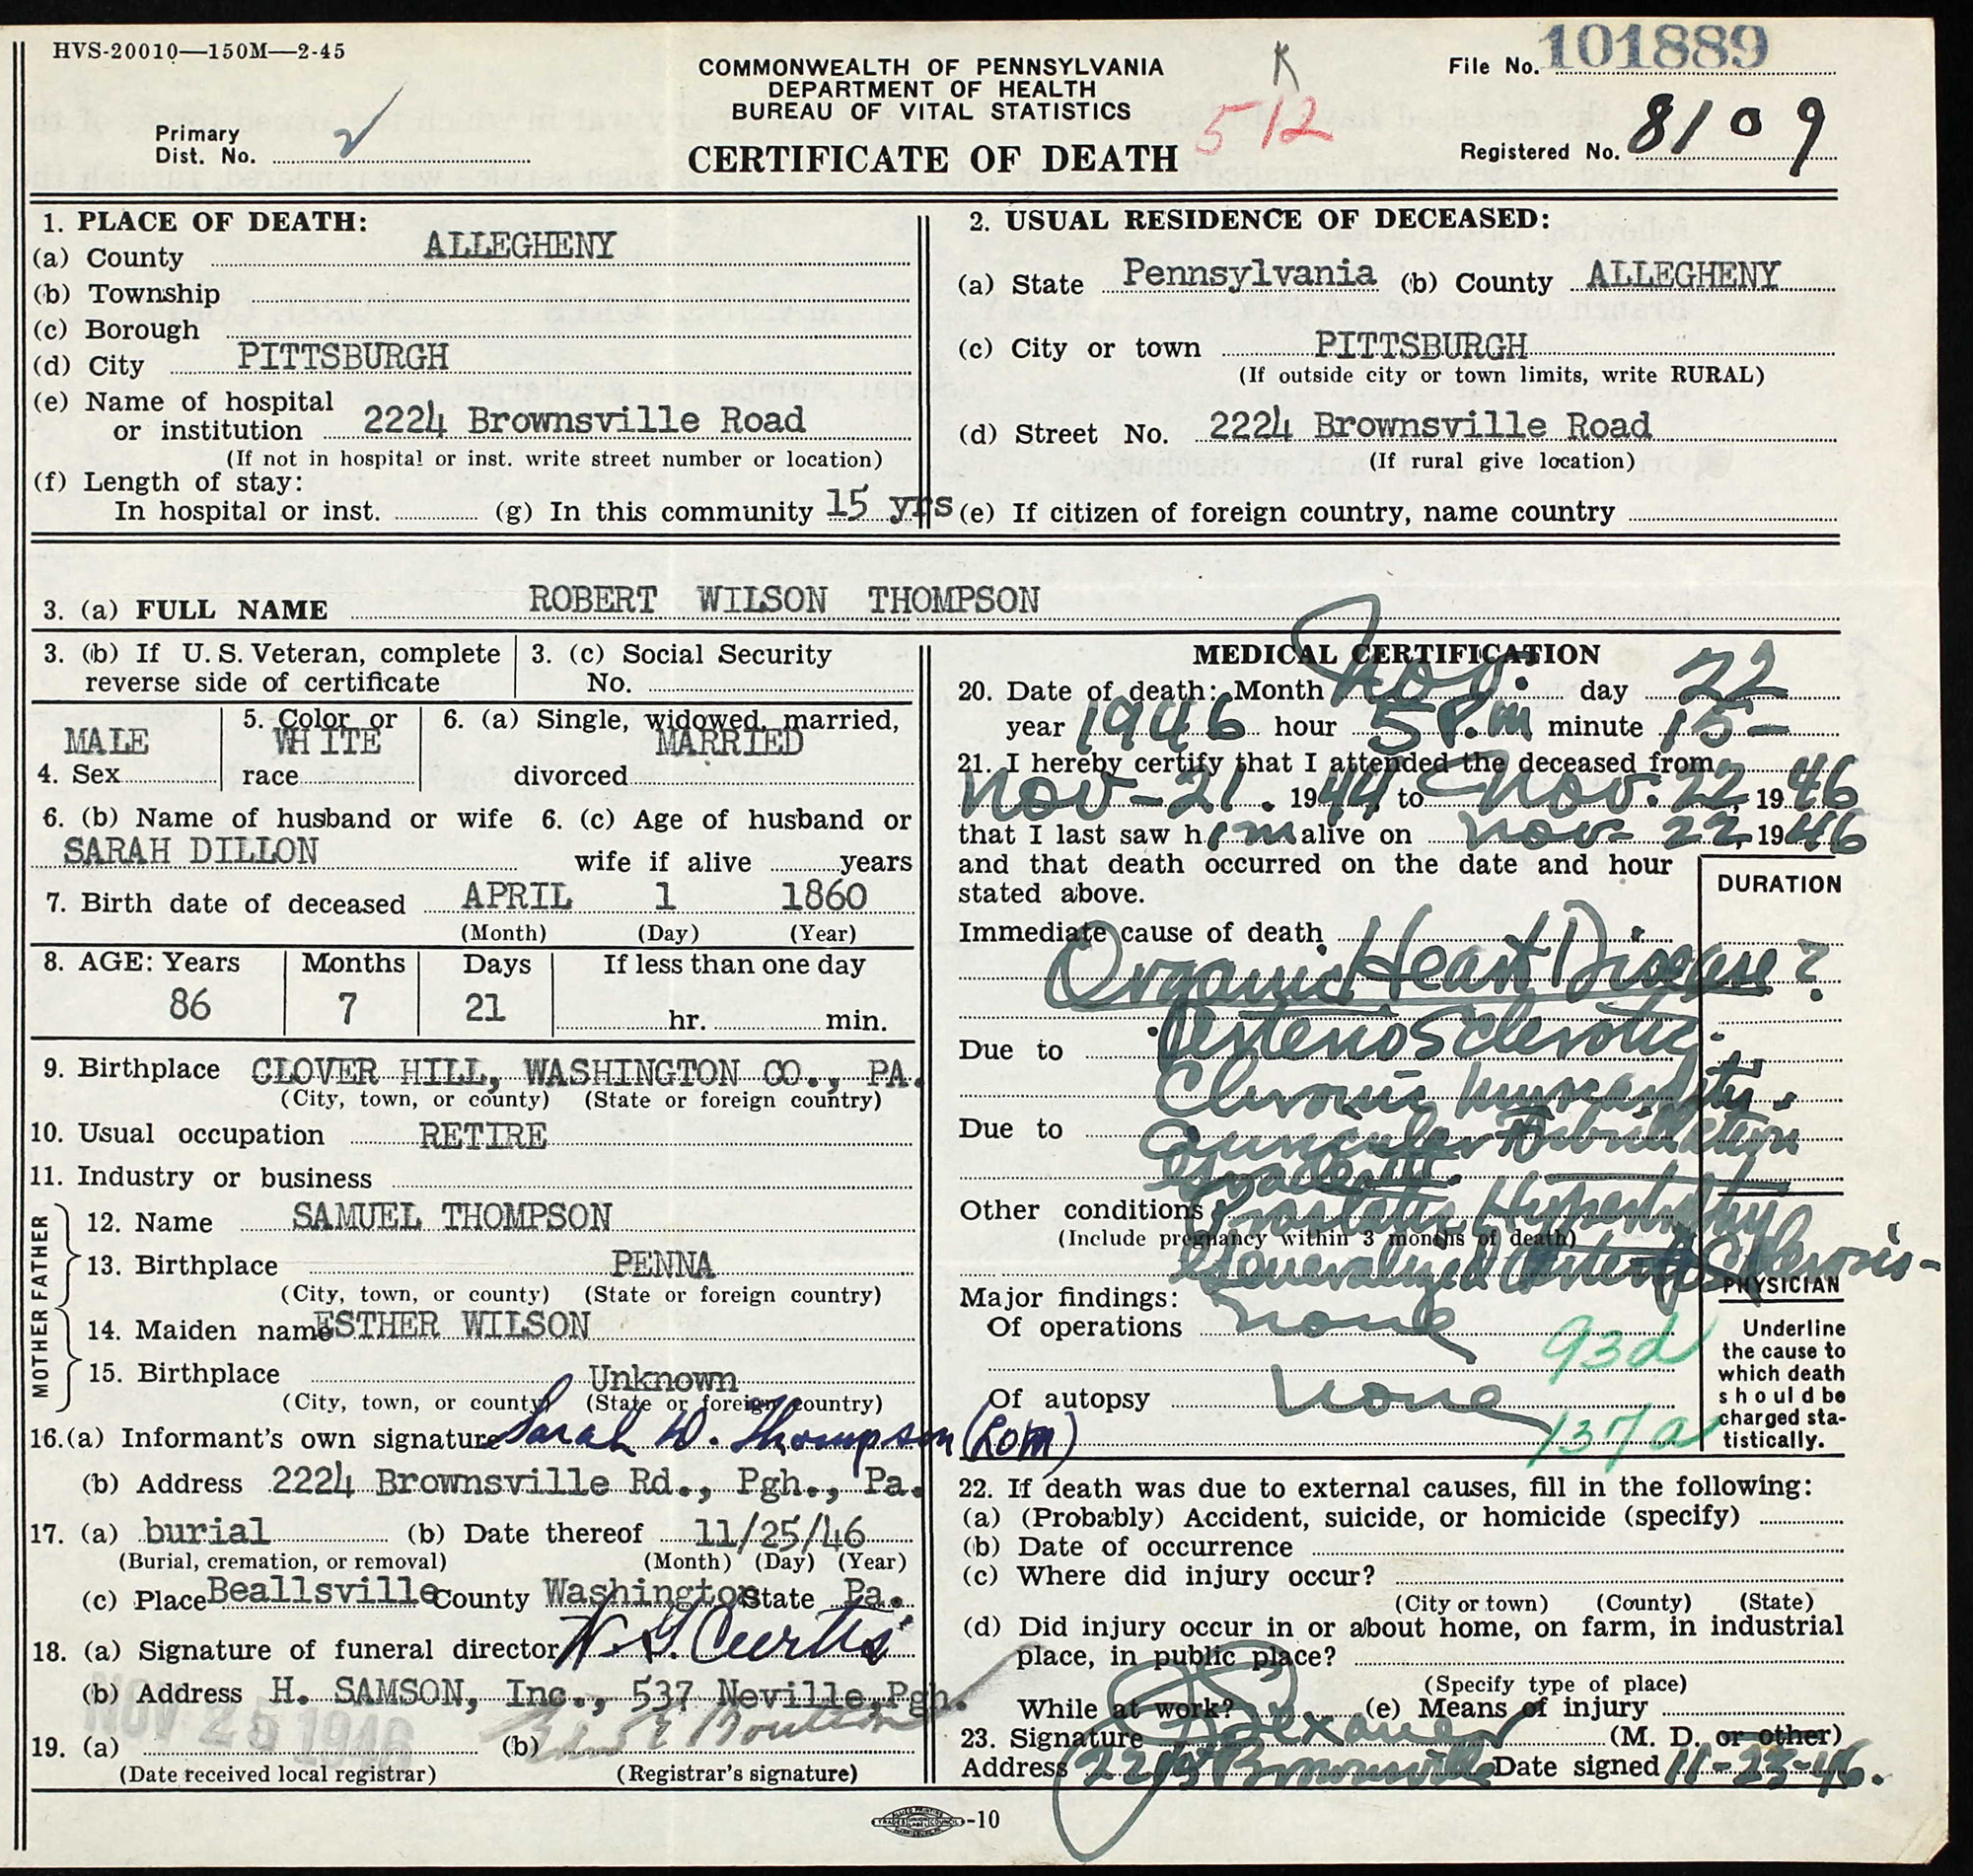 HVS-20010—150M—2-45
COMMONWEALTH OF PENNSYLVANIA
DEPARTMENT OF HEALTH
BUREAU OF VITAL STATISTICS
CERTIFICATE OF DEATH
K
512
File No. 101889
Registered No. 8109
Primary
Dist. No.
1. PLACE OF DEATH:
(a) County ALLEGHENY
(b) Township
(c) Borough
(d) City PITTSBURGH
(e) Name of hospital
or institution 2224 Brownsville Road
(If not in hospital or inst. write street number or location)
(f) Length of stay:
In hospital or inst. (g) In this community 15 yrs
2. USUAL RESIDENCE OF DECEASED:
(a) State Pennsylvania (b) County ALLEGHENY
(c) City or town PITTSBURGH
(If outside city or town limits, write RURAL)
(d) Street No. 2224 Brownsville Road
(If rural give location)
(e) If citizen of foreign country, name country
3. (a) FULL NAME ROBERT WILSON THOMPSON
3. (b) If U. S. Veteran, complete
reverse side of certificate
3. (c) Social Security
No.
MALE
4. Sex
5. Color or
WHITE
race
6. (a) Single, widowed, married,
MARRIED
divorced
6. (b) Name of husband or wife
SARAH DILLON
6. (c) Age of husband or
wife if alive years
7. Birth date of deceased APRIL 1 1860
(Month) (Day) (Year)
8. AGE: Years Months Days If less than one day
86 7 21 hr. min.
9. Birthplace CLOVER HILL, WASHINGTON CO., PA.
(City, town, or county) (State or foreign country)
10. Usual occupation RETIRE
11. Industry or business
FATHER
12. Name SAMUEL THOMPSON
13. Birthplace PENNA
(City, town, or county) (State or foreign country)
MOTHER
14. Maiden name ESTHER WILSON
15. Birthplace Unknown
(City, town, or county) (State or foreign country)
16.(a) Informant's own signature Sarah D. Thompson (Lom)
(b) Address 2224 Brownsville Rd., Pgh., Pa.
17. (a) burial (b) Date thereof 11/25/46
(Burial, cremation, or removal) (Month) (Day) (Year)
(c) Place Beallsville County Washington State Pa.
18. (a) Signature of funeral director N. G. Curtis
(b) Address H. SAMSON, Inc., 537 Neville, Pgh.
NOV 25 1946
19. (a) (b)
(Date received local registrar) (Registrar's signature)
MEDICAL CERTIFICATION
20. Date of death: Month Nov. day 22
year 1946 hour 5 P.m minute 15
21. I hereby certify that I attended the deceased from
Nov-21. 1944 to Nov. 22, 1946
that I last saw him alive on Nov- 22, 1946
and that death occurred on the date and hour
stated above.
DURATION
Immediate cause of death
Organic Heart Disease ?
Due to Arteriosclerotic.
Chronic
Due to Auricular Fibrillation
Other conditions Prostatic Hypertrophy
(Include pregnancy within 3 months of death)
Generalized Arterio Sclerosis-
Major findings:
Of operations none
93d
Of autopsy none
137a
PHYSICIAN
Underline
the cause to
which death
should be
charged sta-
tistically.
22. If death was due to external causes, fill in the following:
(a) (Probably) Accident, suicide, or homicide (specify)
(b) Date of occurrence
(c) Where did injury occur?
(City or town) (County) (State)
(d) Did injury occur in or about home, on farm, in industrial
place, in public place?
(Specify type of place)
While at work? (e) Means of injury
23. Signature (M. D. or other)
Address Brownsville Date signed 11-23-46.
-10